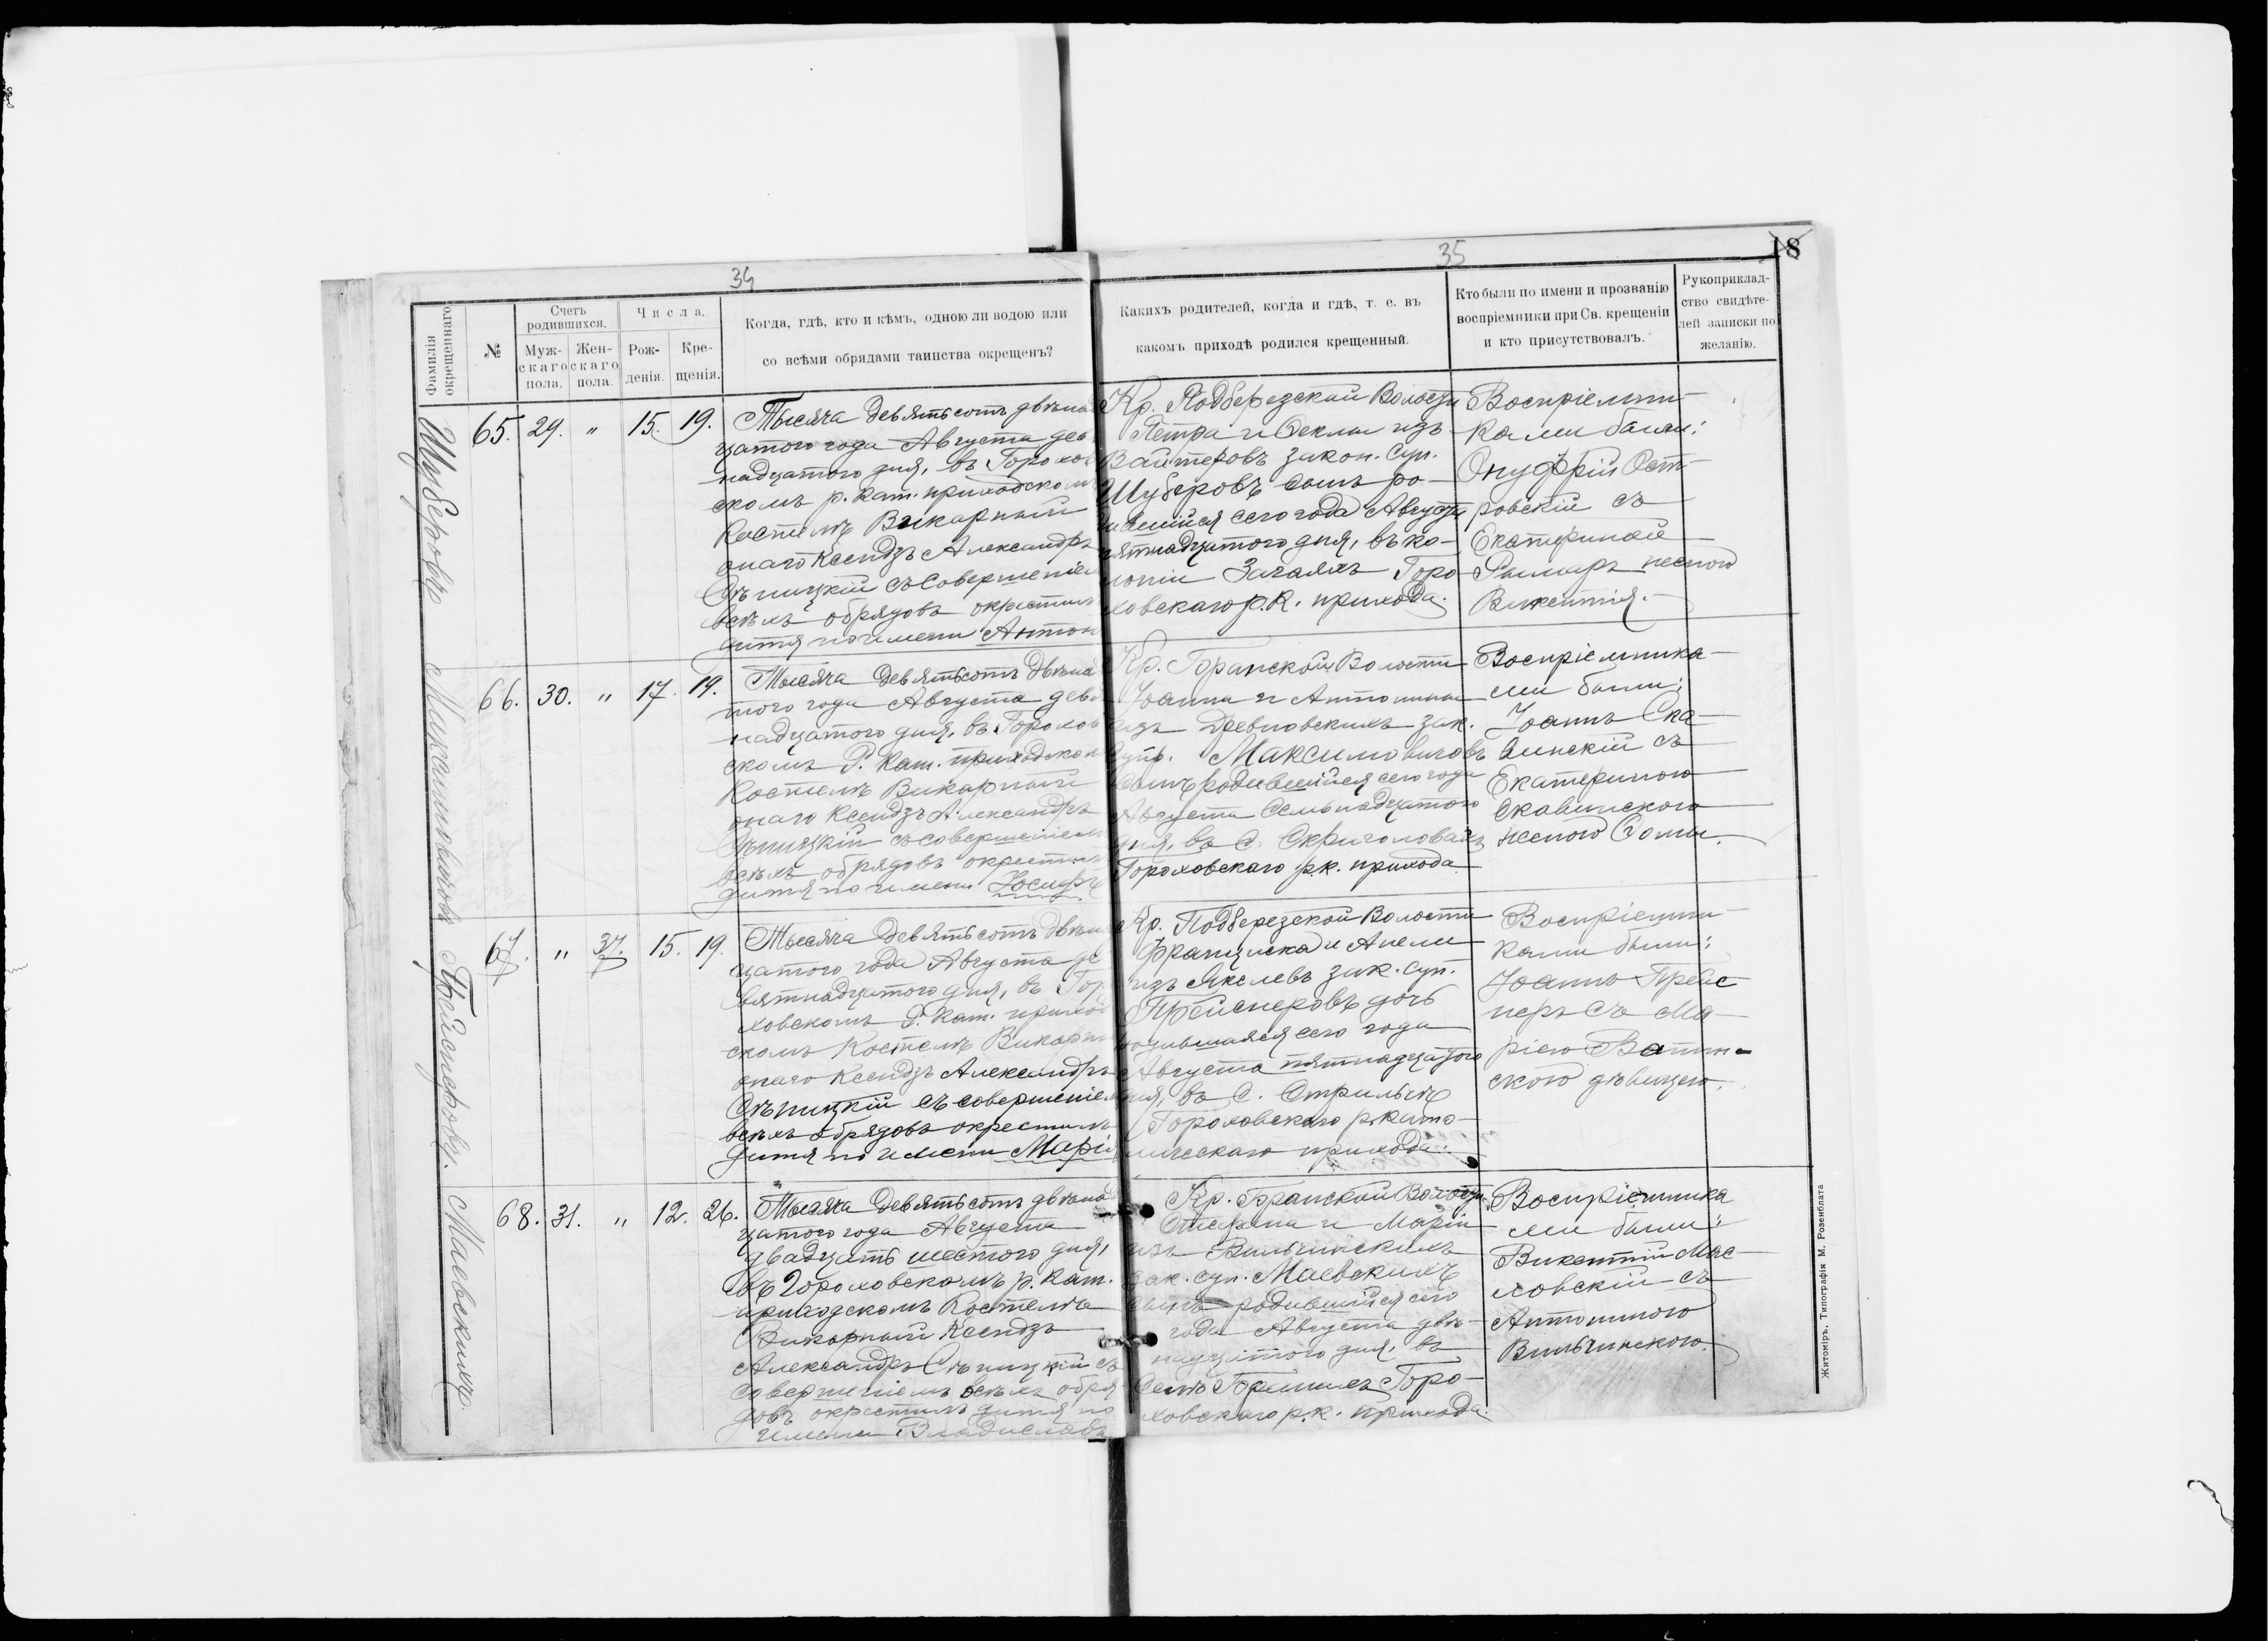 34
35
18
Фамилія окрещеннаго
№
Счетъ родившихся.
Муж-скаго пола.
Жен-скаго пола.
Числа.
Рож-денія.
Кре-щенія.
Когда, гдѣ, кто и кѣмъ, одною ли водою или
со всѣми обрядами таинства окрещенъ?
Какихъ родителей, когда и гдѣ, т. е. въ
какомъ приходѣ родился крещенный.
Кто были по имени и прозванію
воспріемники при Св. крещеніи
и кто присутствовалъ.
Рукоприклад-
ство свидѣте-
лей записки по
желанію.
Шуберовъ
65. 29. " 15. 19.
Тысяча девятьсотъ двѣнад
цатого года Августа девя
надцатого дня, въ Горохов
скомъ р. кат. приходскомъ
Костелѣ Викарный
онаго Ксендзъ Александръ
Сѣницкій съ совершеніем
всѣхъ обрядовъ окрестилъ
дитя по имени Антон
Кр. Подберезской Волости
Петра и Феклы изъ
Вайтеровъ закон. суп.
Шуберовъ сынъ ро-
дившійся сего года Августа
пятнадцатого дня, въ ко-
лоніи Загаяхъ Горо-
ховскаго р. к. прихода.
Воспріемни-
ками были:
Онуфрій Ост-
ровскій съ
Екатериной
Рымаръ женою
Викентія.
Максимовичовъ
66. 30. " 17. 19.
Тысяча девятьсотъ двѣна
того года Августа девя
надцатого дня, въ Горохов
скомъ Р. Кат. приходском
Костелѣ Викарный
онаго Ксендзъ Александръ
Сѣницкій съ совершеніемъ
всѣхъ обрядовъ окрестилъ
дитя по имени Іосифъ
Кр. Бранской Волости
Іоанна и Антонины
изъ Древновскихъ зак.
Супр. Максимовичовъ
сынъ родившійся сего года
Августа семьнадцатого
дня, въ с. Скриголовахъ
Гороховскаго р. к. прихода
Воспріемника-
ми были:
Іоаннъ Ска-
винскій съ
Екатериною
Скавинского
женою Фомы.
Прейснеровъ.
67. " 37. 15. 19.
Тысяча девятьсотъ двѣна
цатого года Августа де
вятнадцатого дня, въ Гор
ховскомъ Р. Кат. приход
скомъ Костелѣ Викарны
онаго Ксендзъ Александръ
Сѣницкій съ совершеніем
всѣхъ обрядовъ окрестилъ
дитя по имени Марія
Кр. Подберезской Волости
Франциска и Анели
изъ Якелевъ зак. суп.
Прейснеровъ дочь
родившаяся сего года
Августа пятнадцатого
дня, въ С. Стрильче
Гороховскаго р. като-
лическаго прихода.
Воспріемни-
ками были:
Іоаннъ Прейс-
неръ съ Ма-
ріею Ватин-
скою дѣвицею.
Маевскихъ.
68. 31. " 12. 26.
Тысяча девятьсотъ двѣнад
цатого года Августа
двадцать шестого дня,
въ Гороховскомъ р. кат.
приходскомъ Костелѣ
Викарный Ксендзъ
Александръ Сѣницкій съ
совершеніемъ всѣхъ обря
довъ окрестилъ дитя по
имени Владиславъ
Кр. Бранской Волости
Стефана и Маріи
изъ Вильчинскихъ
зак. суп. Маевскихъ
сынъ родившійся сего
года Августа двѣ-
надцатого дня, въ
селѣ Горо-
ховскаго р. к. прихода.
Воспріемника
ми были:
Викентій Мас-
ловскій съ
Антониною
Вильчинского.
Житоміръ, Типографія М. Розенблата